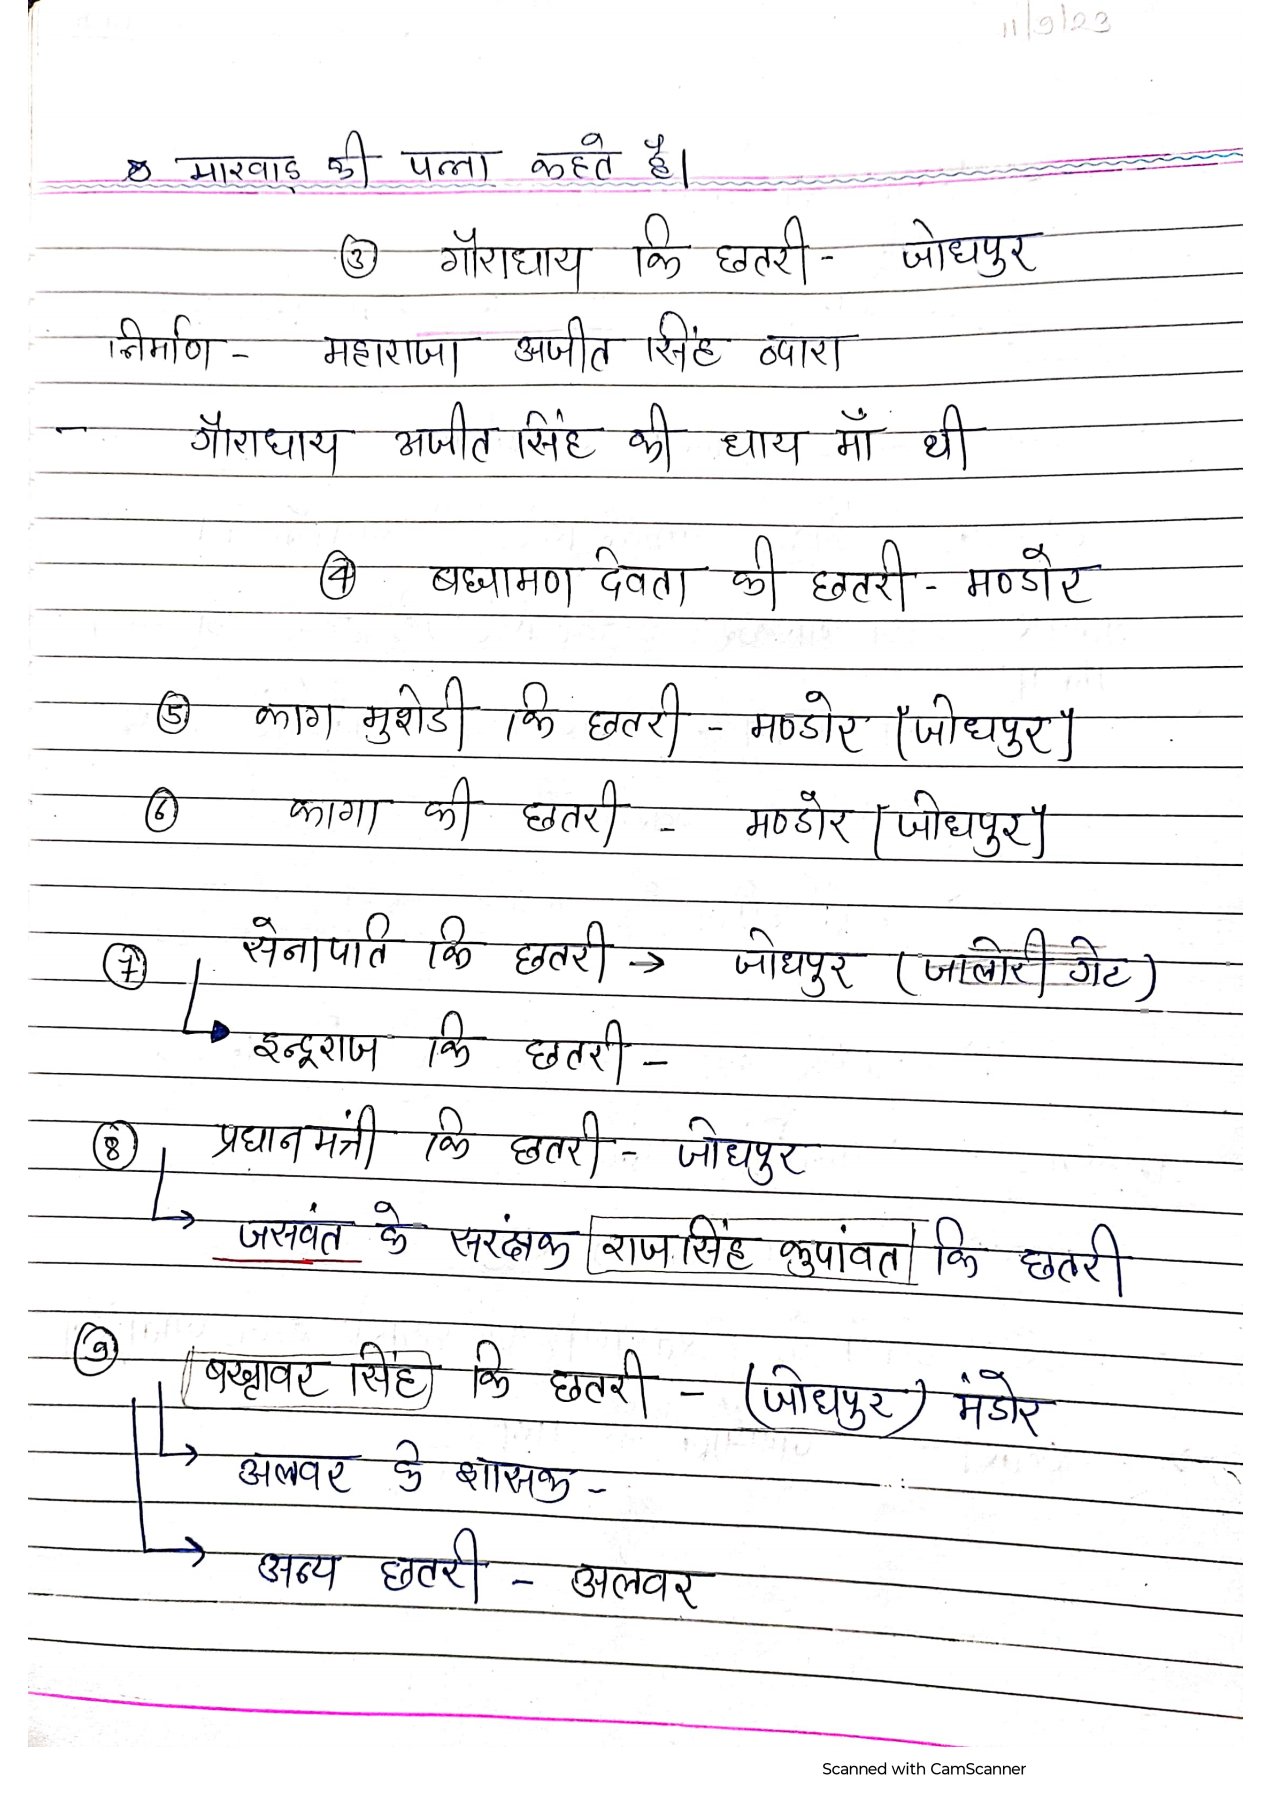 11/9/23
मारवाड़ की पन्ना कहते है।
③ गौराधाय कि छतरी - जोधपुर
निर्माण - महाराजा अजीत सिंह व्दारा
- गौराधाय अजीत सिंह की धाय माँ थी
④ बख्तामण देवता की छतरी - मण्डोर
⑤ काग मुशेडी कि छतरी - मण्डोर [जोधपुर]
⑥ कागा की छतरी - मण्डोर [जोधपुर]
⑦ सेनापति कि छतरी → जोधपुर (जालोरी गेट)
इन्द्रराज कि छतरी -
⑧ प्रधानमंत्री कि छतरी - जोधपुर
→ जसवंत के सरंक्षक राजसिंह कुपांवत कि छतरी
⑨ बख्तावर सिंह कि छतरी - (जोधपुर) मंडोर
→ अलवर के शासक -
→ अन्य छतरी - अलवर
Scanned with CamScanner